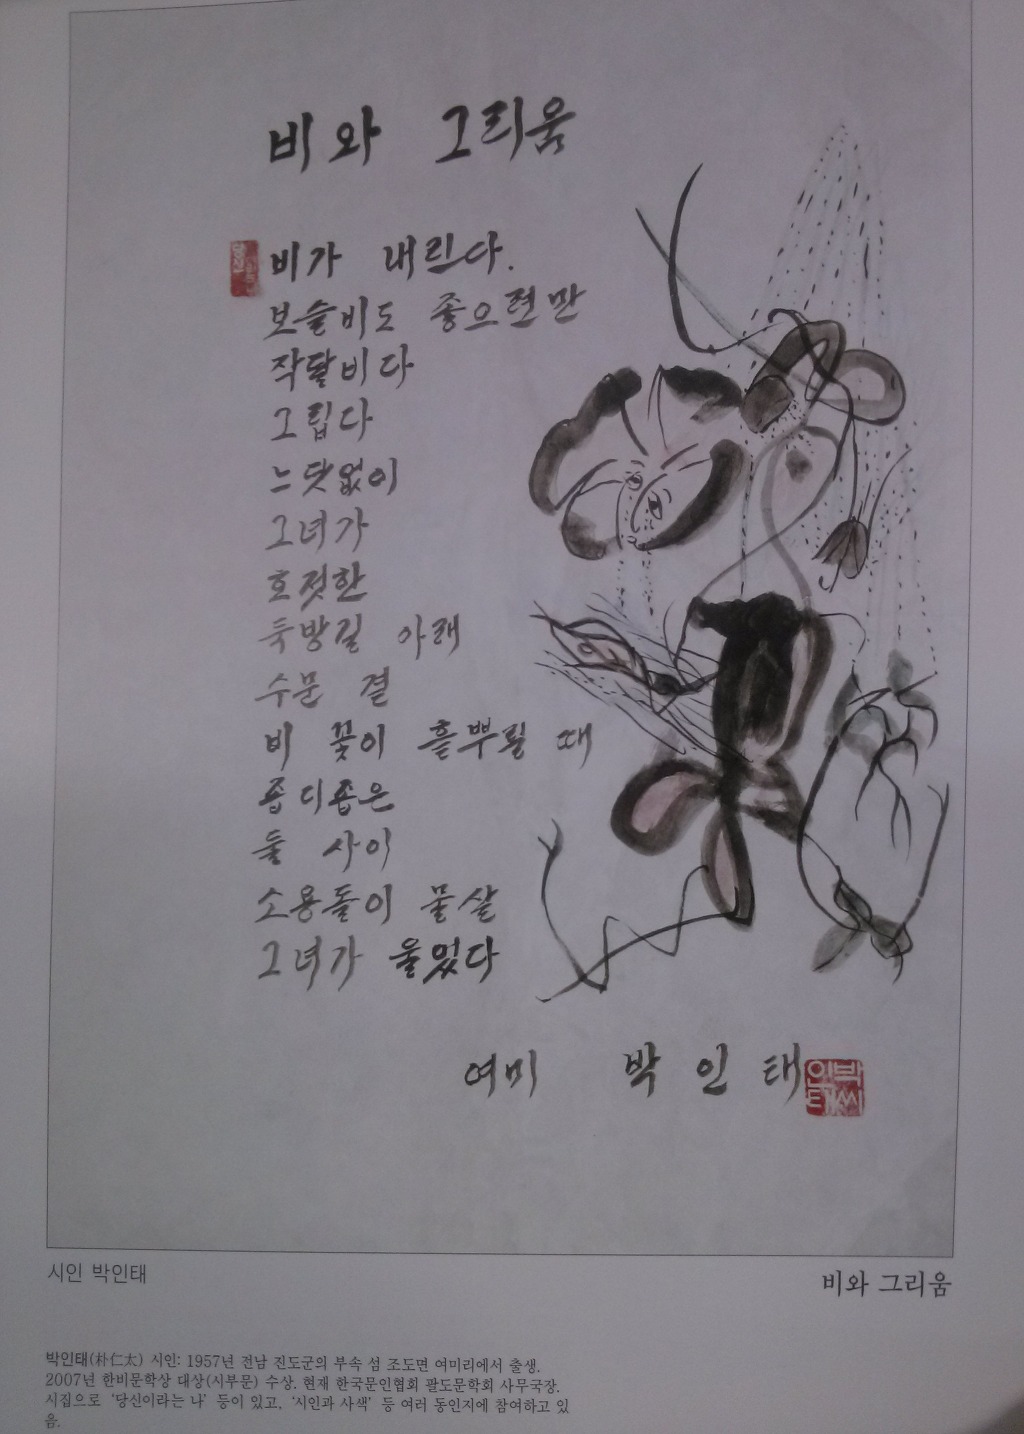 비와 그리움
비가 내린다.
보슬비도 좋으련만
작달비다
그립다
느닷없이
그녀가
호젓한
둑방길 아래
수문 곁
비 꽃이 흩뿌릴 때
좁디좁은
둘 사이
소용돌이 물살
그녀가 울었다
여미 박인태
박씨
인태
시인 박인태
비와 그리움
박인태(朴仁太) 시인: 1957년 전남 진도군의 부속 섬 조도면 여미리에서 출생.
2007년 한비문학상 대상(시부문) 수상. 현재 한국문인협회 팔도문학회 사무국장.
시집으로 '당신이라는 나' 등이 있고, '시인과 사색' 등 여러 동인지에 참여하고 있
음.